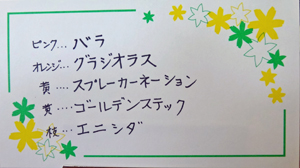 ピンク...バラ
オレンジ...グラジオラス
黄....スプレーカーネーション
黄....ゴールデンステック
枝...エニシダ